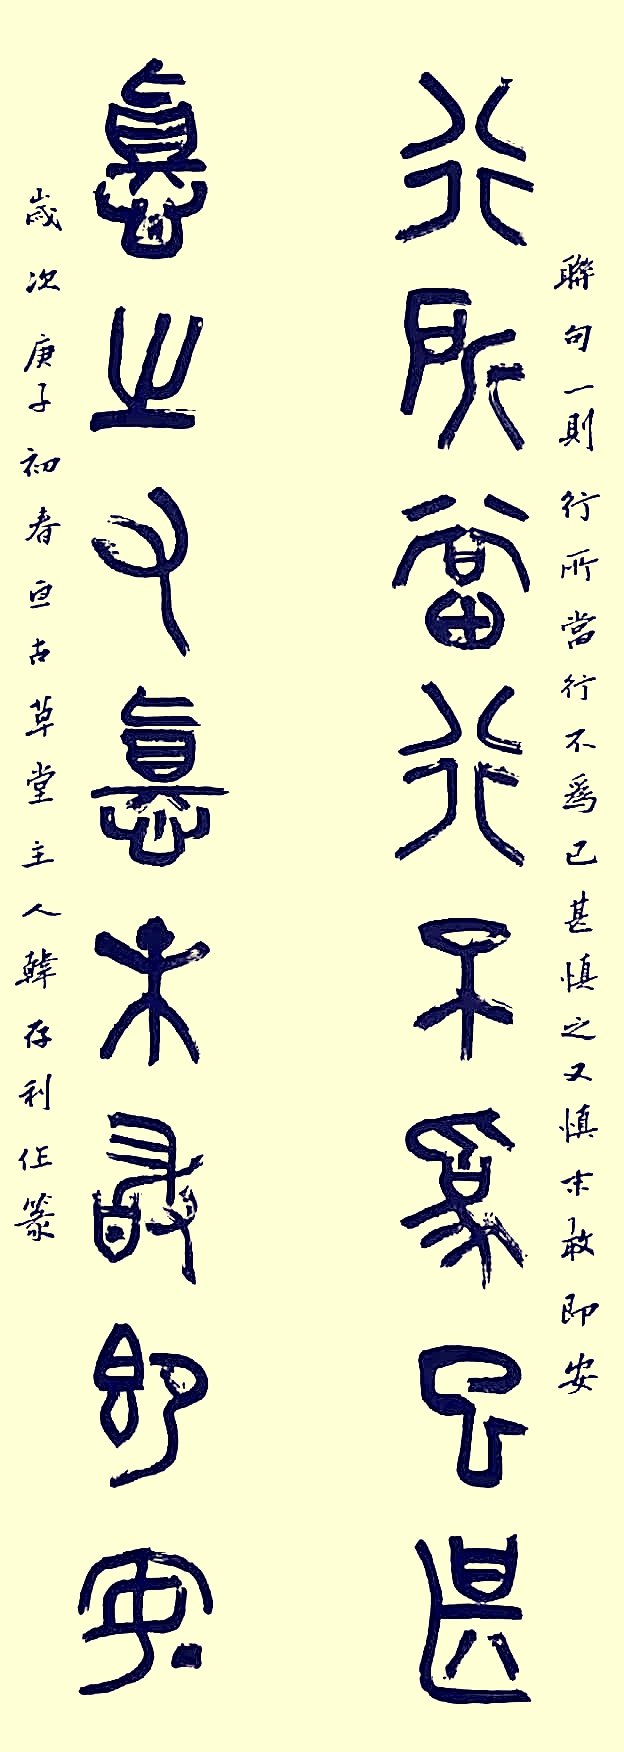 聯句一則行所當行不爲已甚慎之又慎未敢即安
行所當行不爲已甚
慎之又慎未敢即安
歲次庚子初春亘古草堂主人韓存利作篆